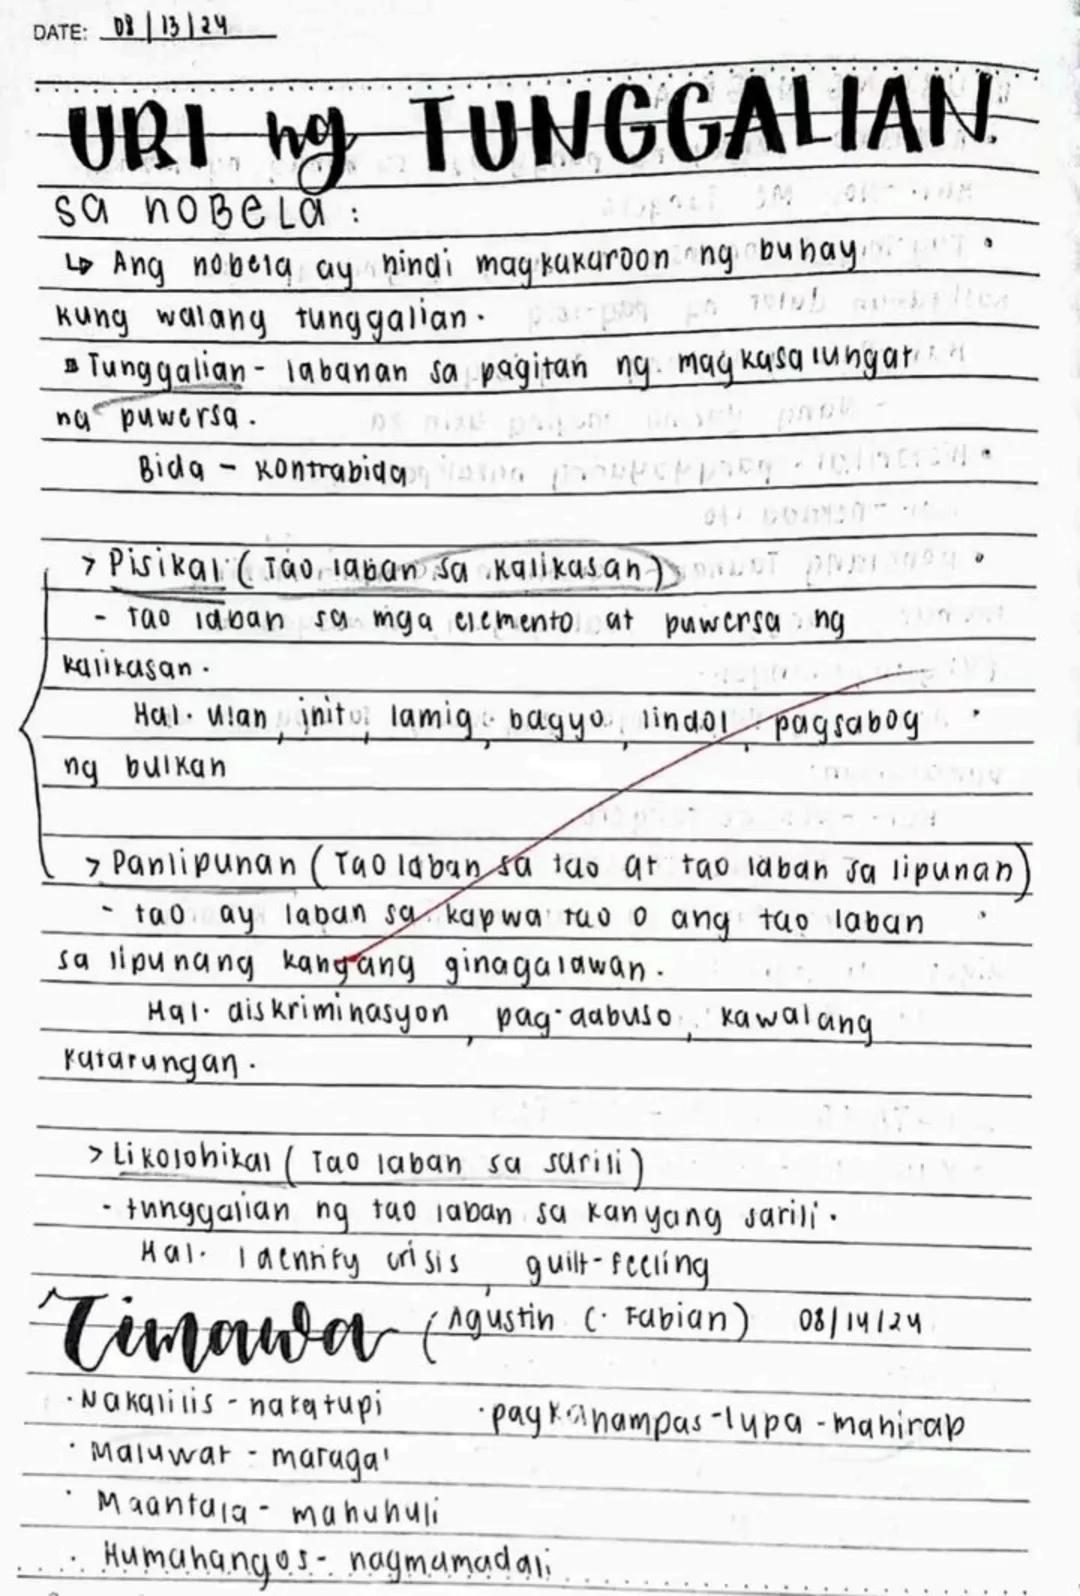 DATE: 08/13/24
URI ng TUNGGALIAN
sa noBeLa :
↳ Ang nobela ay hindi magkakaroon ng buhay
kung walang tunggalian.
Tunggalian - labanan sa pagitan ng magkasalungat
na puwersa.
Bida - kontrabida
> Pisikal (Tao laban sa kalikasan)
- Tao laban sa mga elemento at puwersa ng
kalikasan.
Hal. Ulan, init, lamig, bagyo, lindol, pagsabog
ng bulkan
> Panlipunan (Tao laban sa tao at tao laban sa lipunan)
- tao ay laban sa kapwa tao o ang tao laban
sa lipunang kanyang ginagalawan.
Hal. diskriminasyon, pag-aabuso, kawalang
katarungan.
> Likolohikal (Tao laban sa sarili)
- tunggalian ng tao laban sa kanyang sarili.
Hal. Identity crisis, guilt-feeling
Timawa (Agustin C. Fabian) 08/14/24
· Nakalilis - nakatupi · pagkahampas-lupa - mahirap
· Maluwat - matagal
· Maantala - mahuhuli
· Humahangos - nagmamadali